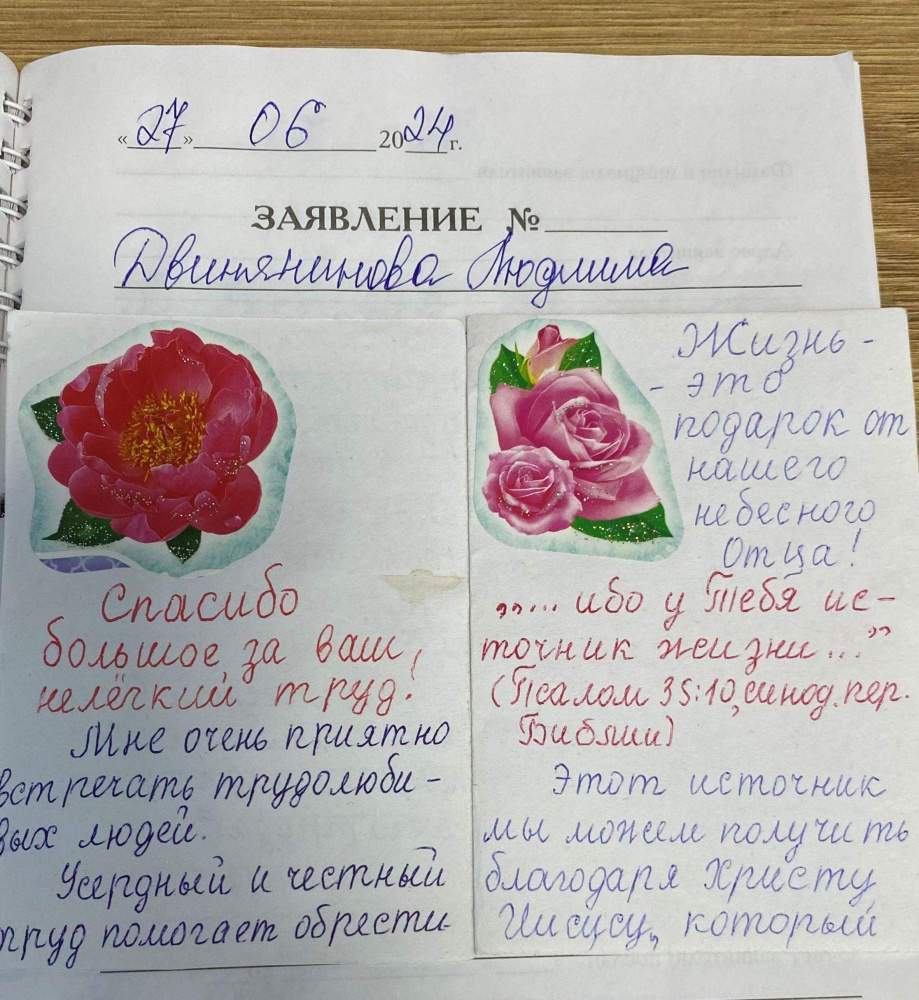 «27» 06 2024 г.
ЗАЯВЛЕНИЕ №
Двинянинова Людмила
Спасибо
большое за ваш
нелёгкий труд!
Мне очень приятно
встречать трудолюби-
вых людей.
Усердный и честный
труд помогает обрести
Жизнь -
- это
подарок от
нашего
небесного
Отца!
„... ибо у Тебя ис-
точник жизни..."
(Псалом 35:10, синод. пер.
Библии)
Этот источник
мы можем получить
благодаря Христу
Иисусу, который